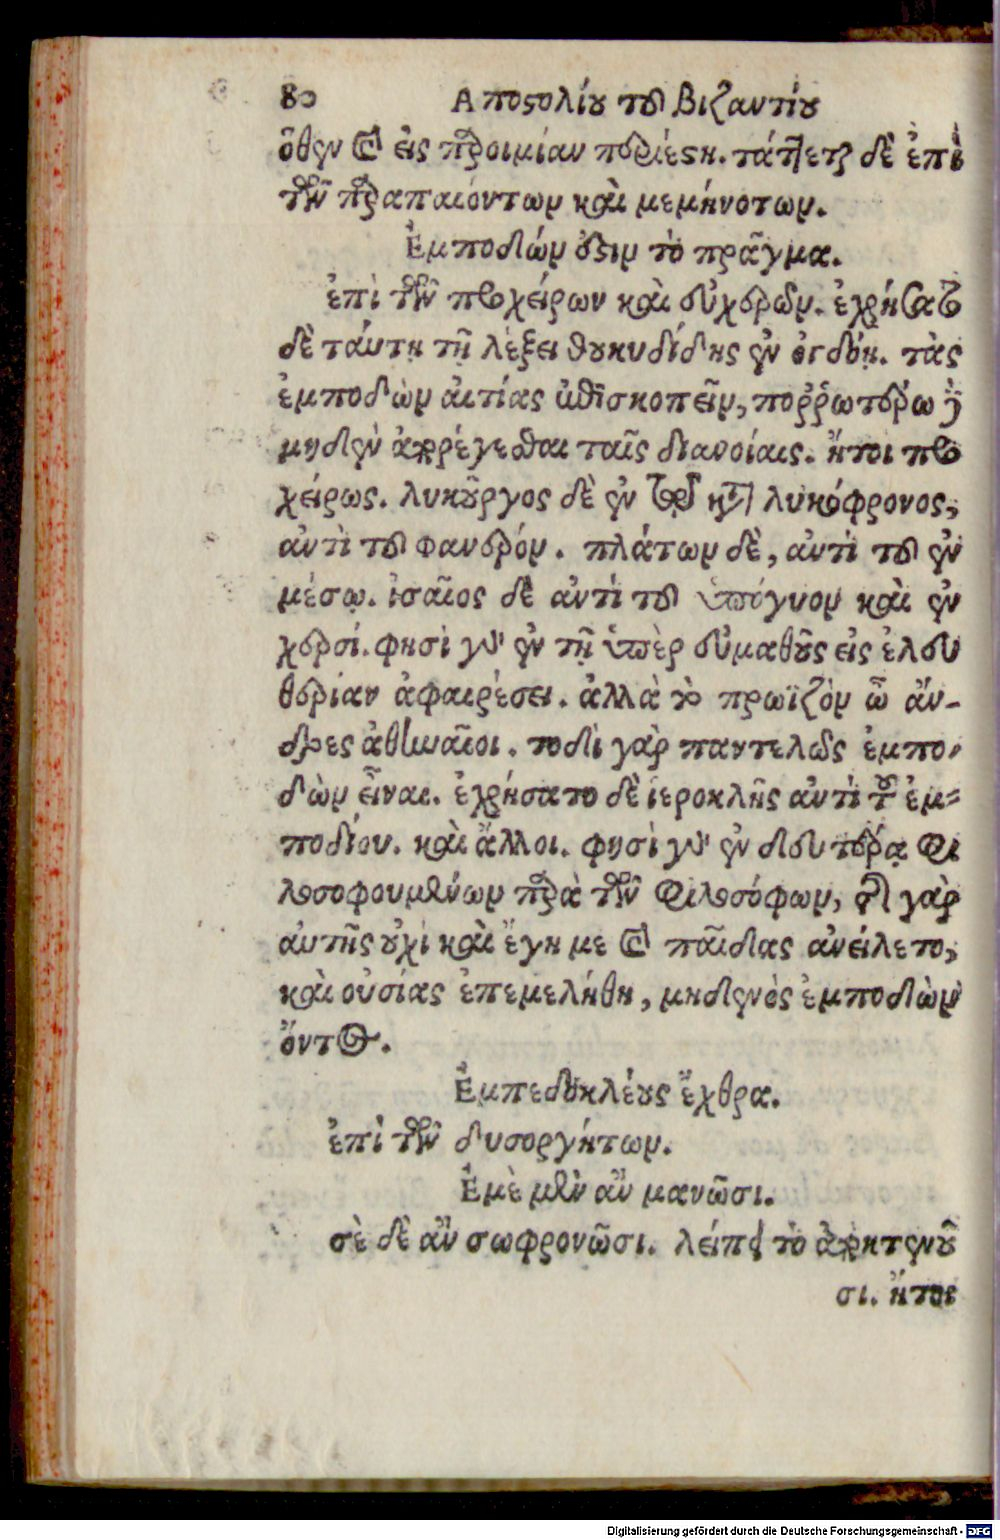 80 Αποστολίου τοῦ Βιζαντίου
ὅθεν καὶ εἰς παροιμίαν περιέστη. τάττεται δὲ ἐπὶ
τῶν παραπαιόντων καὶ μεμηνότων.
Ἐμποδών ἐστιν τὸ πρᾶγμα.
ἐπὶ τῶν προχείρων καὶ εὐχερῶν. ἐχρήσατο
δὲ ταύτῃ τῇ λέξει θουκυδίδης ἐν ὀγδόῃ. τὰς
ἐμποδὼν αἰτίας ἐπισκοπεῖν, πορρωτέρω δὲ
μηδὲν ὀρέγεσθαι ταῖς διανοίαις. ἤτοι προ
χείρως. λυκοῦργος δὲ ἐν τῷ κατὰ λυκόφρονος,
ἀντὶ τοῦ φανερόν. πλάτων δὲ, ἀντὶ τοῦ ἐν
μέσῳ. ἰσαῖος δὲ ἀντὶ τοῦ ὑπόγυον καὶ ἐν
χερσί. φησὶ γοῦν ἐν τῇ ὑπὲρ εὐμαθοῦς εἰς ἐλευ
θερίαν ἀφαιρέσει. ἀλλὰ τὸ πρωϊζὸν ὦ ἄν-
δρες ἀθηναῖοι. τοδὶ γὰρ παντελῶς ἐμπο-
δὼν εἶναι. ἐχρήσατο δὲ ἱεροκλῆς ἀντὶ τοῦ ἐμ-
ποδίου. καὶ ἄλλοι. φησὶ γοῦν ἐν δευτέρᾳ φι
λοσοφουμένων παρὰ τῶν φιλοσόφων, τίς γὰρ
αὐτῆς οὐχὶ καὶ ἔγημε καὶ παῖδας ἀνείλετο,
καὶ οὐσίας ἐπεμελήθη, μηδενὸς ἐμποδὼν
ὄντος.
Ἐμπεδοκλέους ἔχθρα.
ἐπὶ τῶν δυσοργήτων.
Ἐμὲ μὲν ἂν μανῶσι.
σὲ δὲ ἂν σωφρονῶσι. λείπει τὸ ἀποκτενοῦ
σι. ἤτοι
Digitalisierung gefördert durch die Deutsche Forschungsgemeinschaft - DFG